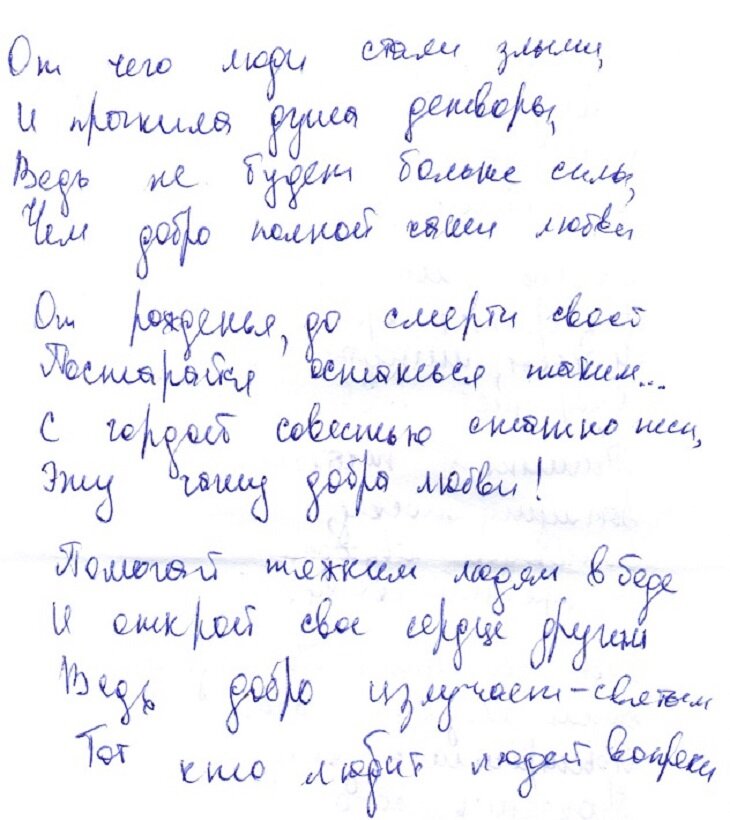 От чего люди стали злыми,
И прогнила душа детворы,
Ведь не будет больше силы,
Чем добро полной чаши любви
От рожденья, до смерти своей
Постарайся остаться таким...
С гордой совестью статно неси,
Эту чашу добра любви!
Помогай тяжким людям в беде
И открой свое сердце другим
Ведь добро излучает-святым
Тот кто любит людей вопреки